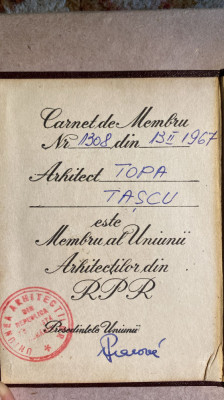 Carnet de Membru
Nr. 1308 din 13 II 1967
Arhitect TOPA
TAȘCU
este
Membru al Uniunii
Arhitecților din
RPR
Președintele Uniunii
UNIUNEA ARHITECȚILOR
DIN
REPUBLICA